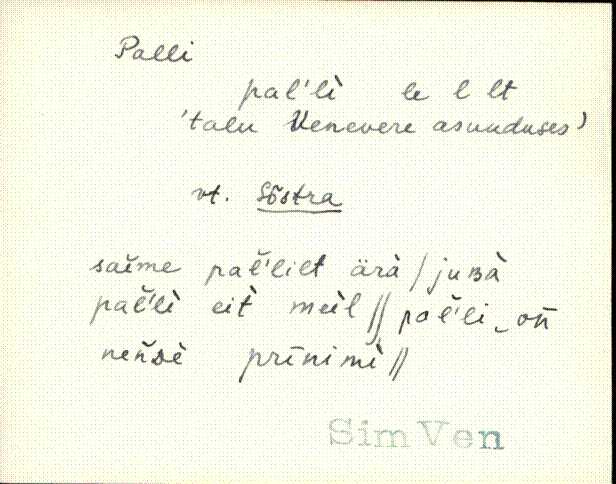 Palli
pal'lì le l lt
'talu Venevere asunduses'
vt. Sõstra
saĭme paľ'lilt ärà / juʙà
paľ'lì eit̀ meil̀ // paľ'li‿oň
neňdè prīnimì //
Sim Ven